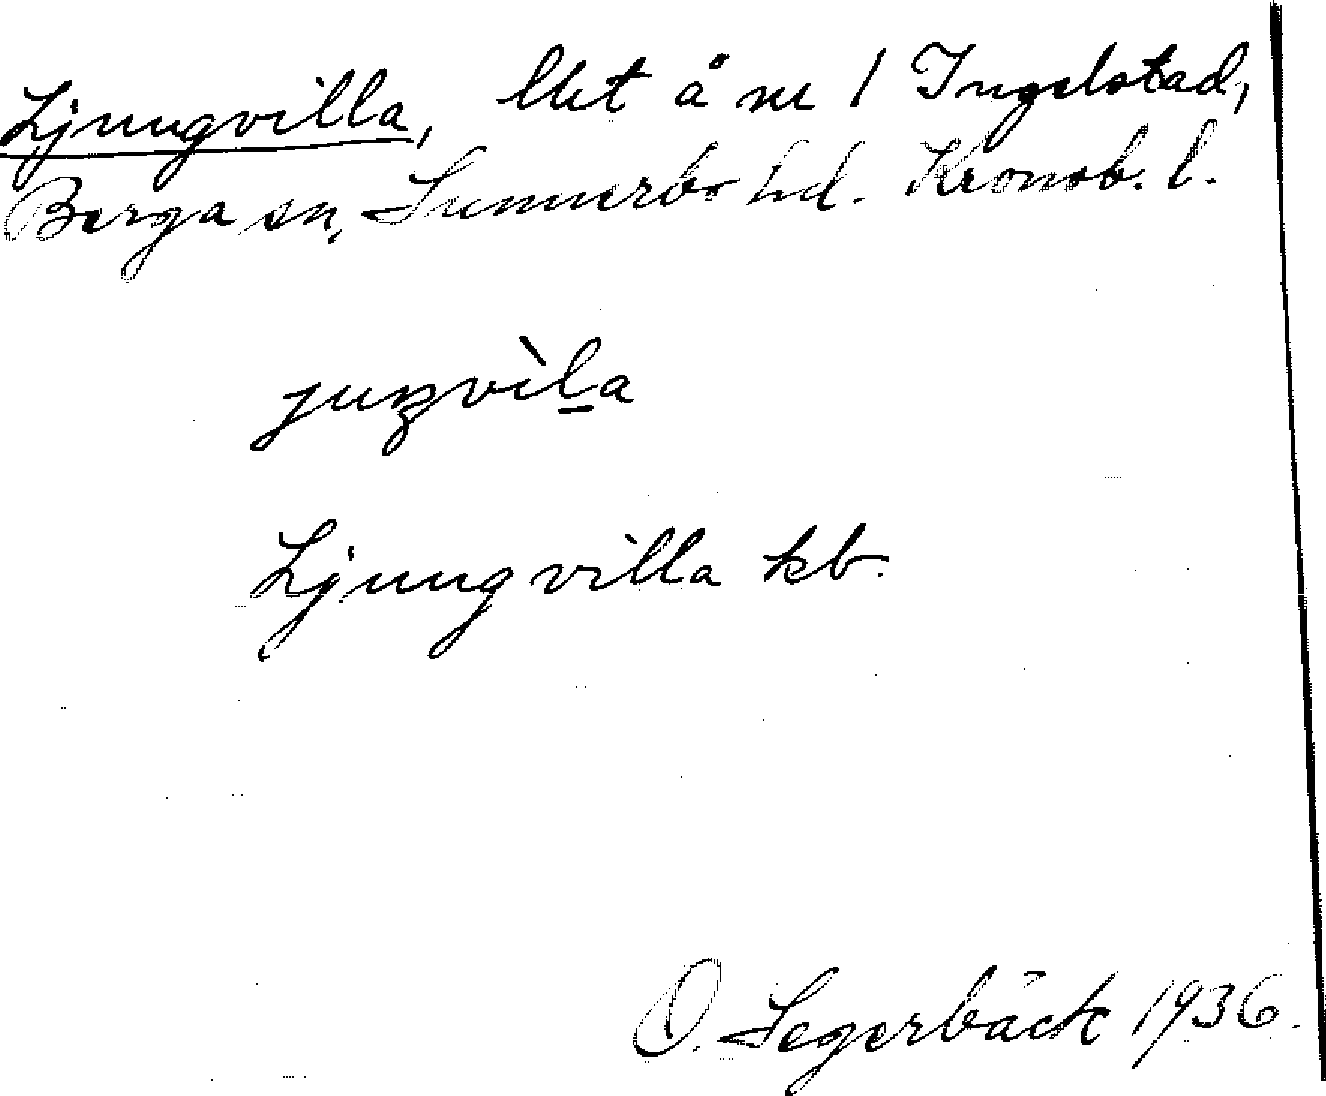 Ljungvilla, lht å nr 1 Ingelstad,
Berga sn, Sunnerbo hd. Kronob. l.
juŋvìl̲a
Ljungvilla kb.
O. Segerbäck 1936.